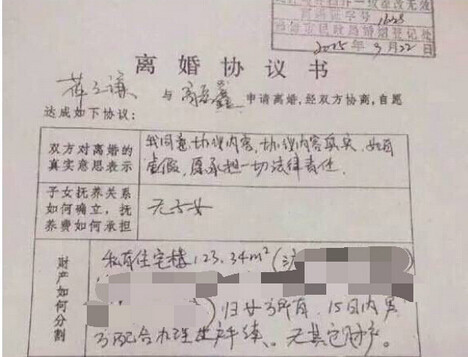 离婚协议书
薛之谦 与 高磊鑫 申请离婚,经双方协商,自愿
达成如下协议:
双方对离婚的
真实意思表示
我同意协议内容,协议内容真实,如有
虚假,愿承担一切法律责任.
子女抚养关系
如何确立,抚
养费如何承担
无子女
财产如何分割
私有住宅楼123.34m²(
)归女方所有,15日内男
方配合办理过户手续。无其它财产。